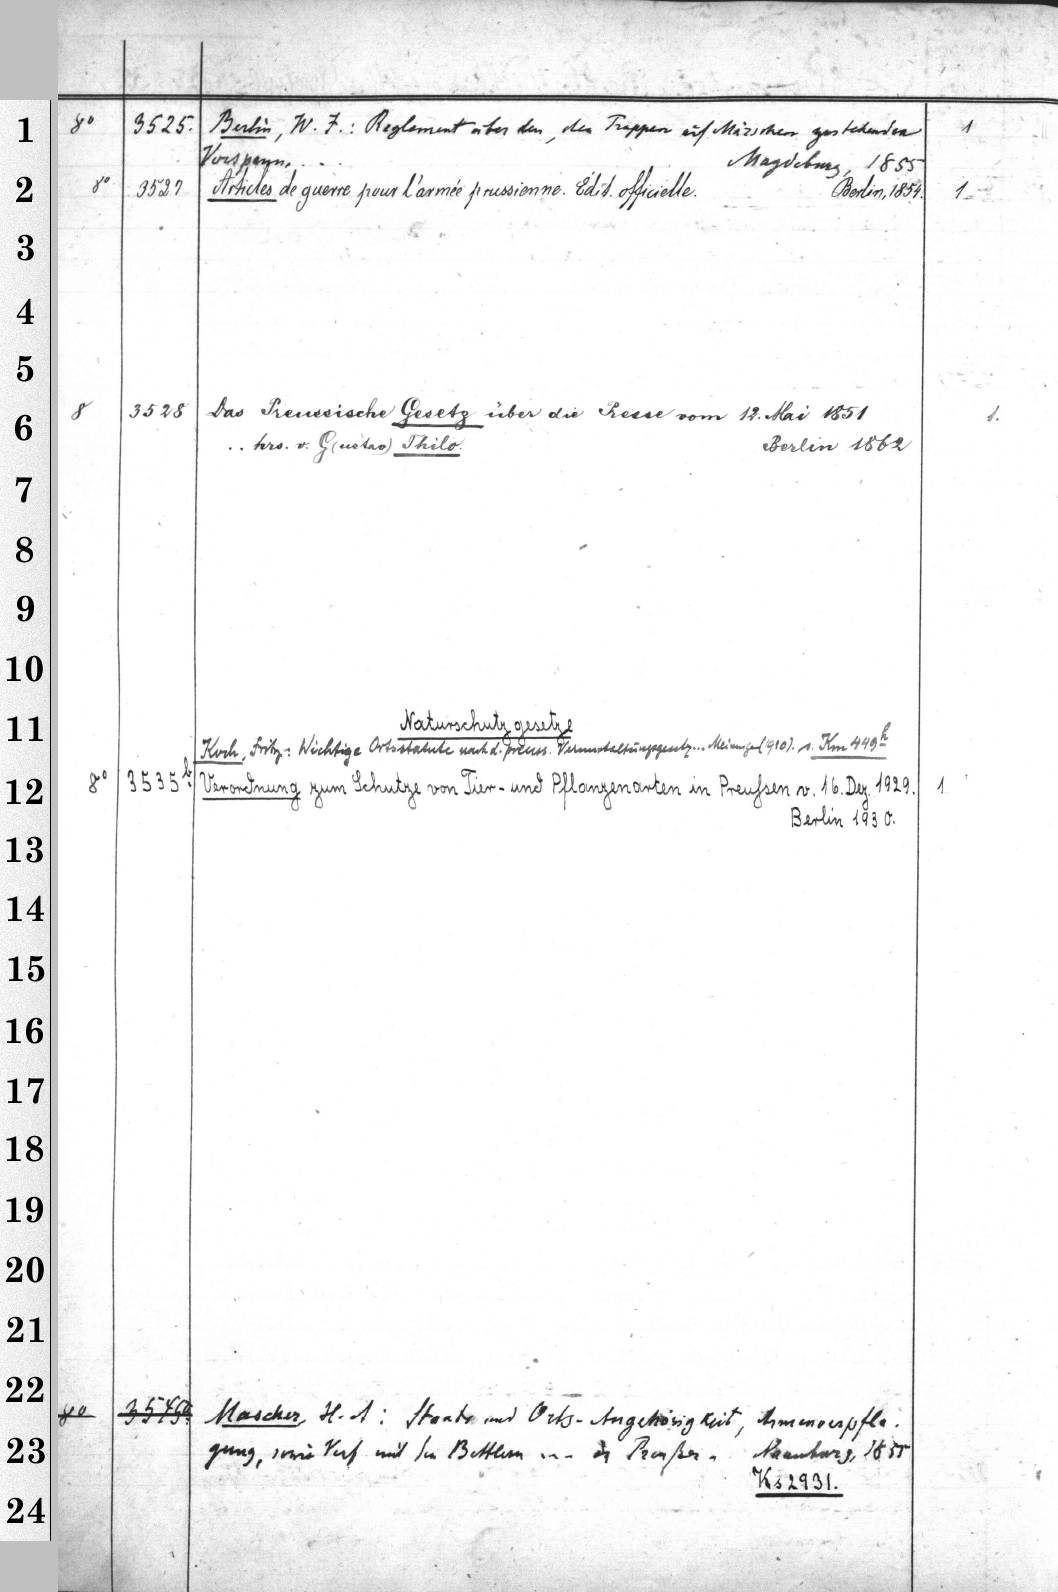 1 8° 3525. Berlin, W. F.: Reglement über den, den Truppen auf Märschen zustehenden 1
Vorspann. . . . Magdeburg, 1855
2 8° 3527 Articles de guerre pour l'armée prussienne. Édit. officielle. Berlin, 1854. 1
3
4
5
6 8 3528 Das Preussische Gesetz über die Presse vom 12. Mai 1851 1.
. . hrs. v. G(ustav) Thilo. Berlin 1862
7
8
9
10
11 Naturschutzgesetze
Koch, Fritz: Wichtige Ortsstatute nach d. preuss. Verunstaltungsgesetz... Meiningen (1910). s. Km 449h
12 8° 3535b. Verordnung zum Schutze von Tier- und Pflanzenarten in Preußen v. 16. Dez. 1929. 1
Berlin 1930.
13
14
15
16
17
18
19
20
21
22
8° Mascher, H. A: Staats und Orts-Angehörigkeit, Armenverpfle-
23 gung, sowie Verf mit den Bettlern ... in Preußen. Naumburg, 1855
Ks 2931.
24